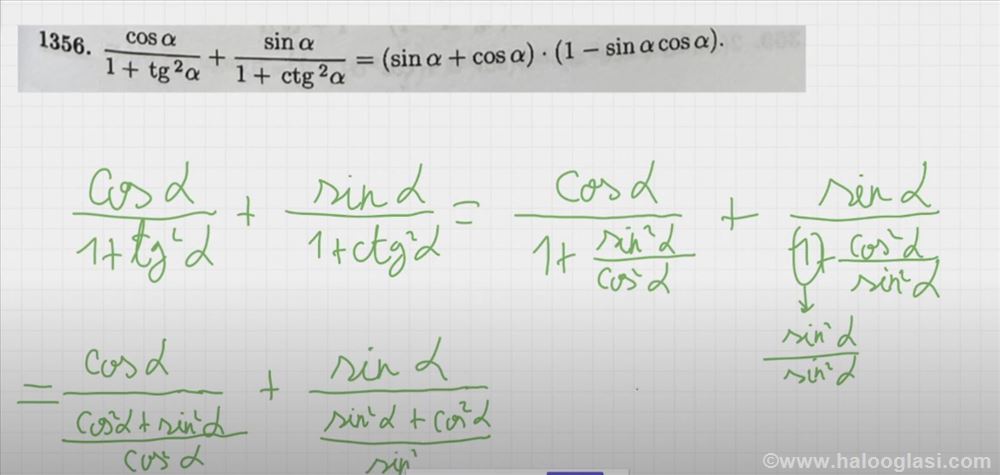 1356. cos α / (1 + tg²α) + sin α / (1 + ctg²α) = (sin α + cos α) · (1 − sin α cos α).
cos α / (1 + tg²α) + sin α / (1 + ctg²α) = cos α / (1 + sin²α / cos²α) + sin α / (1 + cos²α / sin²α)
sin²α / sin²α
= cos α / ((cos²α + sin²α) / cos²α) + sin α / ((sin²α + cos²α) / sin²
©www.halooglasi.com